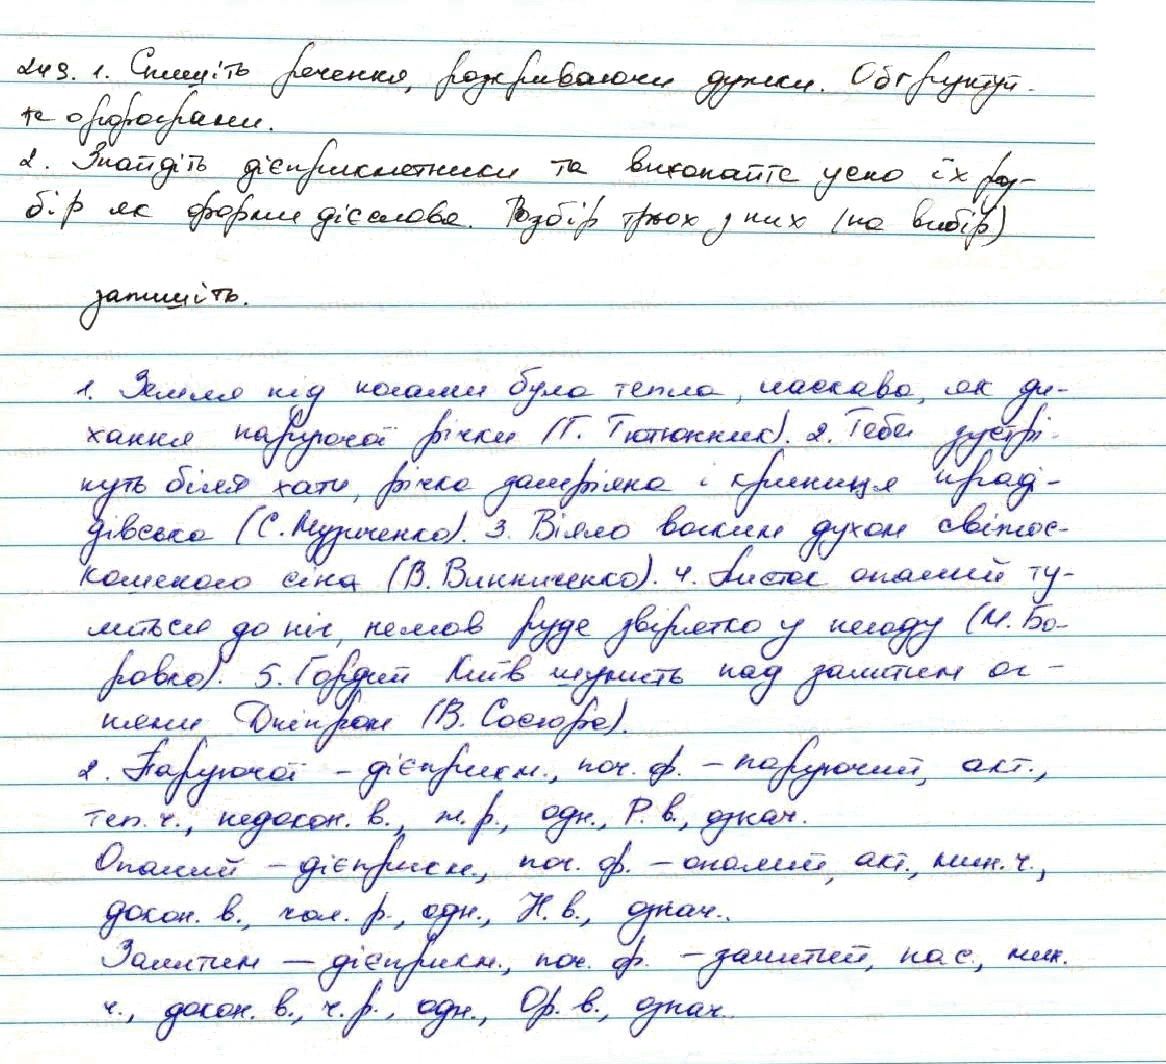 249. 1. Спишіть речення, розкриваючи дужки. Обґрунтуй-
те орфограми.
2. Знайдіть дієприкметники та виконайте усно їх роз-
бір як форми дієслова. Розбір трьох з них (на вибір)
запишіть.
1. Земля під ногами була тепла, ласкава, як ди-
хання паруючої річки (Г. Тютюнник). 2. Тебе зустрі-
нуть біля хати, річка замріяна і криниця праді-
дівська (С. Музиченко). 3. Віяло вогким духом свіжос-
кошеного сіна (В. Винниченко). 4. Листок опалий ту-
литься до ніг, немов руде звірятко у негоду (М. Бо-
ровко). 5. Гордий Київ шумить над залитим ог-
нями Дніпром (В. Сосюра).
2. Паруючої – дієприкм., поч. ф. – паруючий, акт.,
теп. ч., недокон. в., ж. р., одн., Р. в., означ.
Опалий – дієприкм., поч. ф. – опалий, акт., мин. ч.,
докон. в., чол. р., одн., Н. в., означ..
Залитим – дієприкм., поч. ф. – залитий, пас., мин.
ч., докон. в., ч. р., одн., Ор. в., означ..